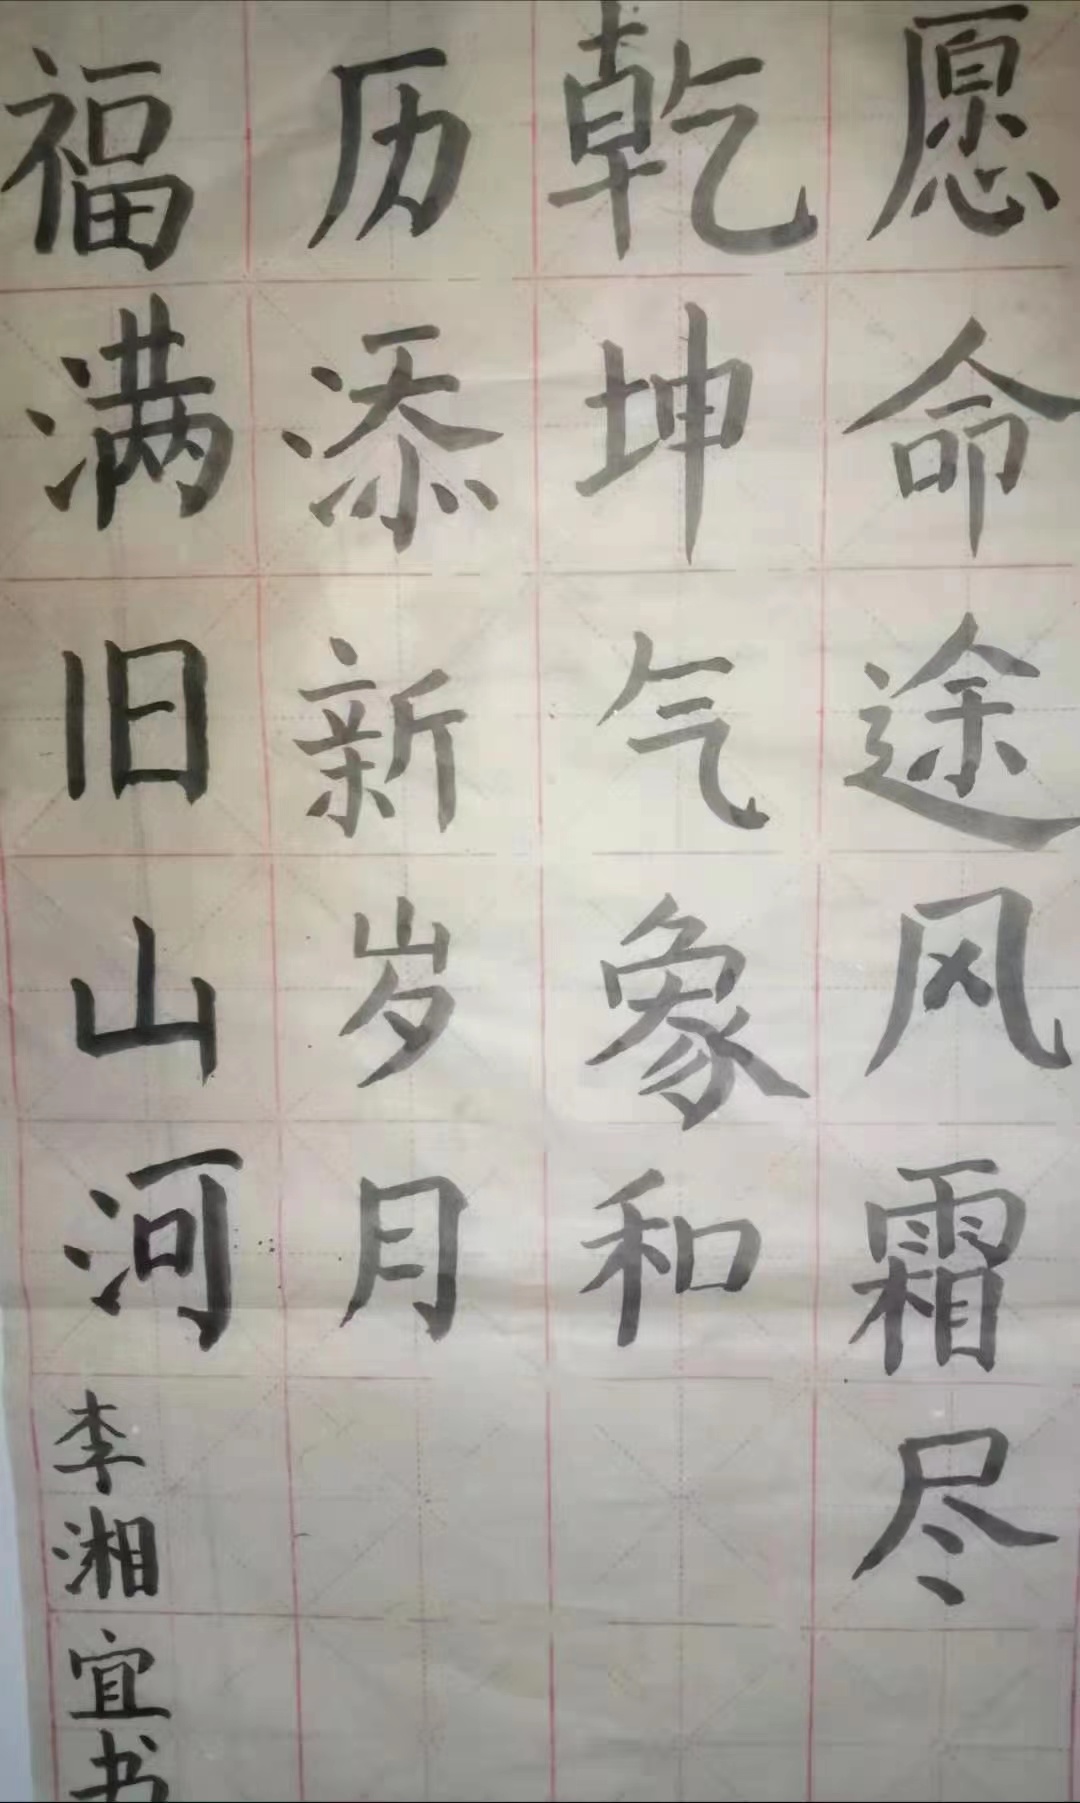 愿命途风霜尽
乾坤气象和
历添新岁月
福满旧山河
李湘宜书